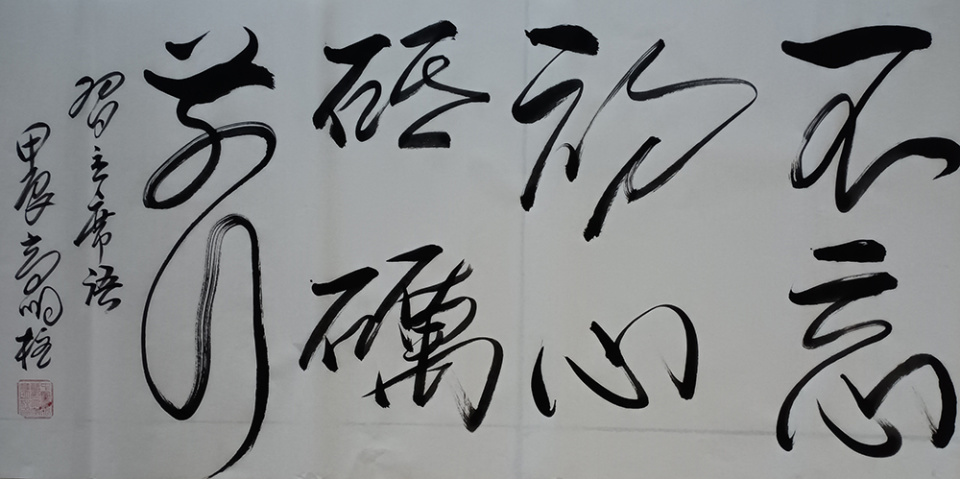 不忘
初心
砥礪
前行
習主席語
甲辰高